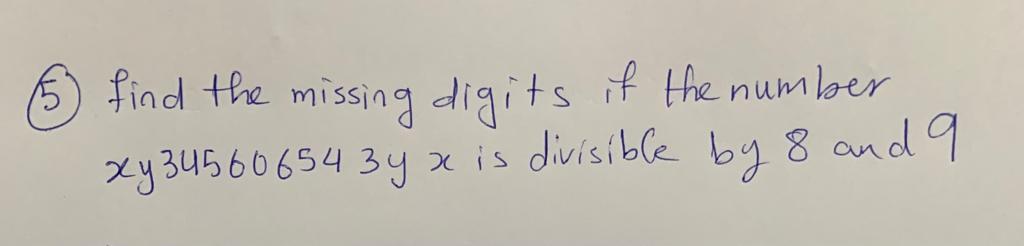 5 find the missing digits if the number
xy34560654 3y x is divisible by 8 and 9